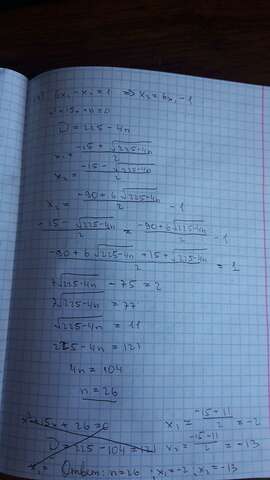 6x₁ - x₂ = 1 ⇒ x₂ = 6x₁ - 1
x² + 15x + n = 0
D = 225 - 4n
x₁ = (-15 + √(225-4n))/2
x₂ = (-15 - √(225-4n))/2
x₂ = (-90 + 6√(225-4n))/2 - 1
(-15 - √(225-4n))/2 = (-90 + 6√(225-4n))/2 - 1
(-90 + 6√(225-4n) + 15 + √(225-4n))/2 = 1
7√(225-4n) - 75 = 2
7√(225-4n) = 77
√(225-4n) = 11
225 - 4n = 121
4n = 104
n = 26
x² + 15x + 26 = 0
D = 225 - 104 = 121
x₁ =
x₁ = (-15+11)/2 = -2
x₂ = (-15-11)/2 = -13
Ответ: n = 26 ; x₁ = -2 ; x₂ = -13